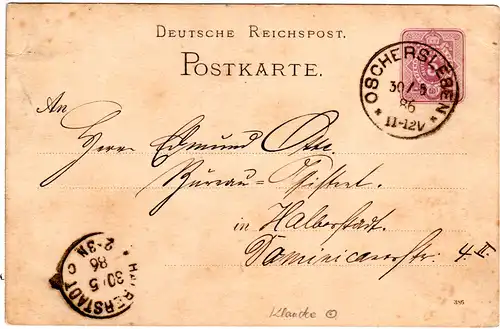 DEUTSCHE REICHSPOST.
POSTKARTE.
OSCHERSLEBEN
30/5
86
11-12V
An
Herrn Edmund Otte
Bureau=
in Halberstadt.
Dominicanerstr. 4.II.
HALBERSTADT
30 5
86
2-3N
C